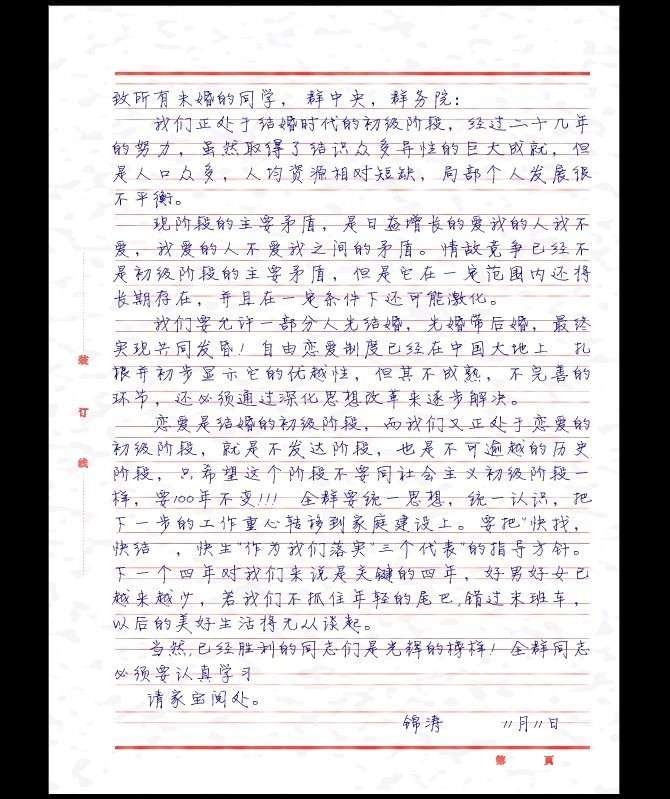 致所有未婚的同学，群中央，群务院：
我们正处于结婚时代的初级阶段，经过二十几年
的努力，虽然取得了结识众多异性的巨大成就，但
是人口众多，人均资源相对短缺，局部个人发展很
不平衡。
现阶段的主要矛盾，是日益增长的爱我的人我不
爱，我爱的人不爱我之间的矛盾。情敌竞争已经不
是初级阶段的主要矛盾，但是它在一定范围内还得
长期存在，并且在一定条件下还可能激化。
我们要允许一部分人先结婚，先婚带后婚，最终
实现共同发昏！自由恋爱制度已经在中国大地上 扎
根并初步显示它的优越性，但其不成熟，不完善的
环节，还必须通过深化思想改革来逐步解决。
恋爱是结婚的初级阶段，而我们又正处于恋爱的
初级阶段，就是不发达阶段，也是不可逾越的历史
阶段，只希望这个阶段不要同社会主义初级阶段一
样，要100年不变!!! 全群要统一思想，统一认识，把
下一步的工作重心转移到家庭建设上。要把"快找，
快结 ，快生"作为我们落实"三个代表"的指导方针。
下一个四年对我们来说是关键的四年，好男好女已
越来越少，若我们不抓住年轻的尾巴，错过末班车，
以后的美好生活将无从谈起。
当然，已经胜利的同志们是光辉的榜样！全群同志
必须要认真学习
请家宝阅处。
锦涛 11月11日
装
订
线
第 页